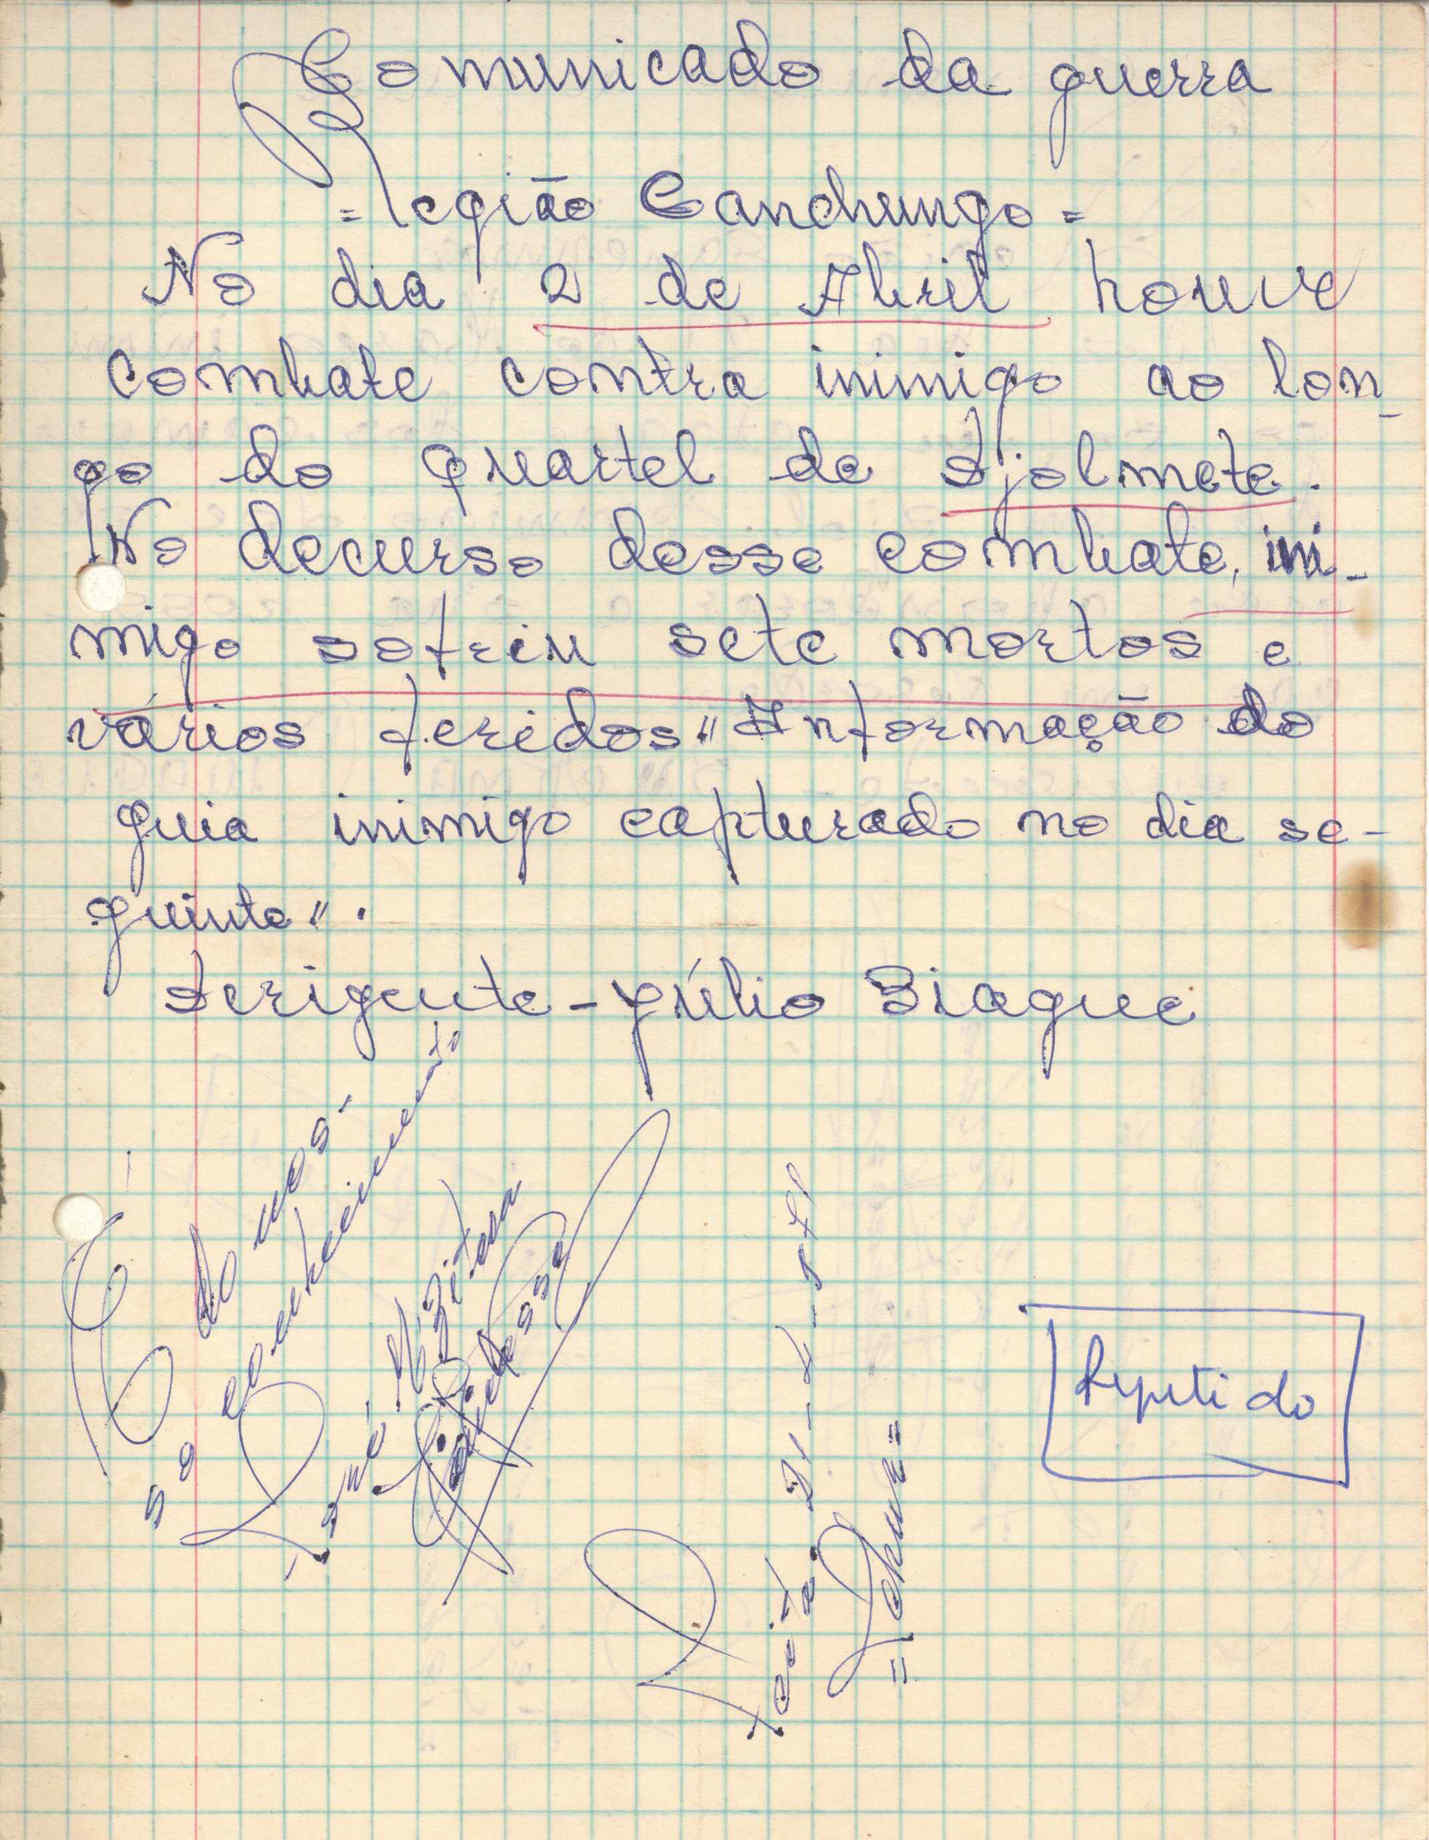 Comunicado da guerra
= Região Canchungo =
No dia 2 de Abril houve
combate contra inimigo ao lon-
go do quartel de Djolmete.
No decurso desse combate, ini-
migo sofreu sete mortos e
vários feridos "Informação do
guia inimigo capturado no dia se-
guinte".
Derigente - Júlio Biague
É do nos-
so conhecimento
José
Repetido